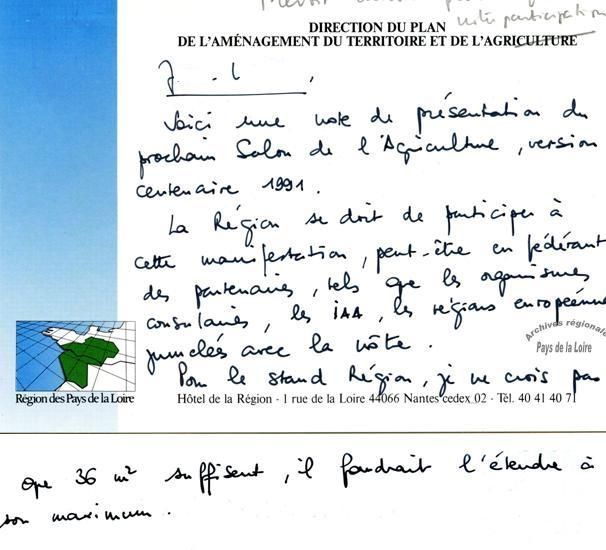 votre participation
DIRECTION DU PLAN
DE L'AMÉNAGEMENT DU TERRITOIRE ET DE L'AGRICULTURE
J. L,
Voici une note de présentation du
prochain Salon de l'Agriculture, version
centenaire 1991.
La Région se doit de participer à
cette manifestation, peut-être en fédérant
des partenaires, tels que les organismes
consulaires, les IAA, les régions européennes
jumelées avec la nôtre.
Archives régionales
Pays de la Loire
Pour le stand Région, je ne crois pas
Région des Pays de la Loire
Hôtel de la Région - 1 rue de la Loire 44066 Nantes cedex 02 - Tél. 40 41 40 71
que 36 m² suffisent, il faudrait l'étendre à
son maximum.